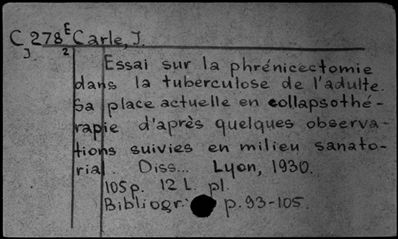 C 278 E Carle, J.
J 2
Essai sur la phrénicectomie
dans la tuberculose de l'adulte.
Sa place actuelle en collapsothé-
rapie d'après quelques observa-
tions suivies en milieu sanato-
rial. Diss... Lyon, 1930.
105 p. 12 L. pl.
Bibliogr. p. 93-105.